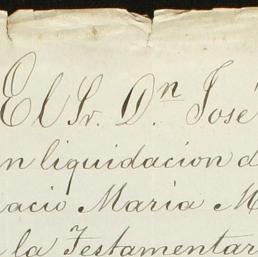 El Sr. D.n José
n liquidacion d
acio Maria M
la Testamentar